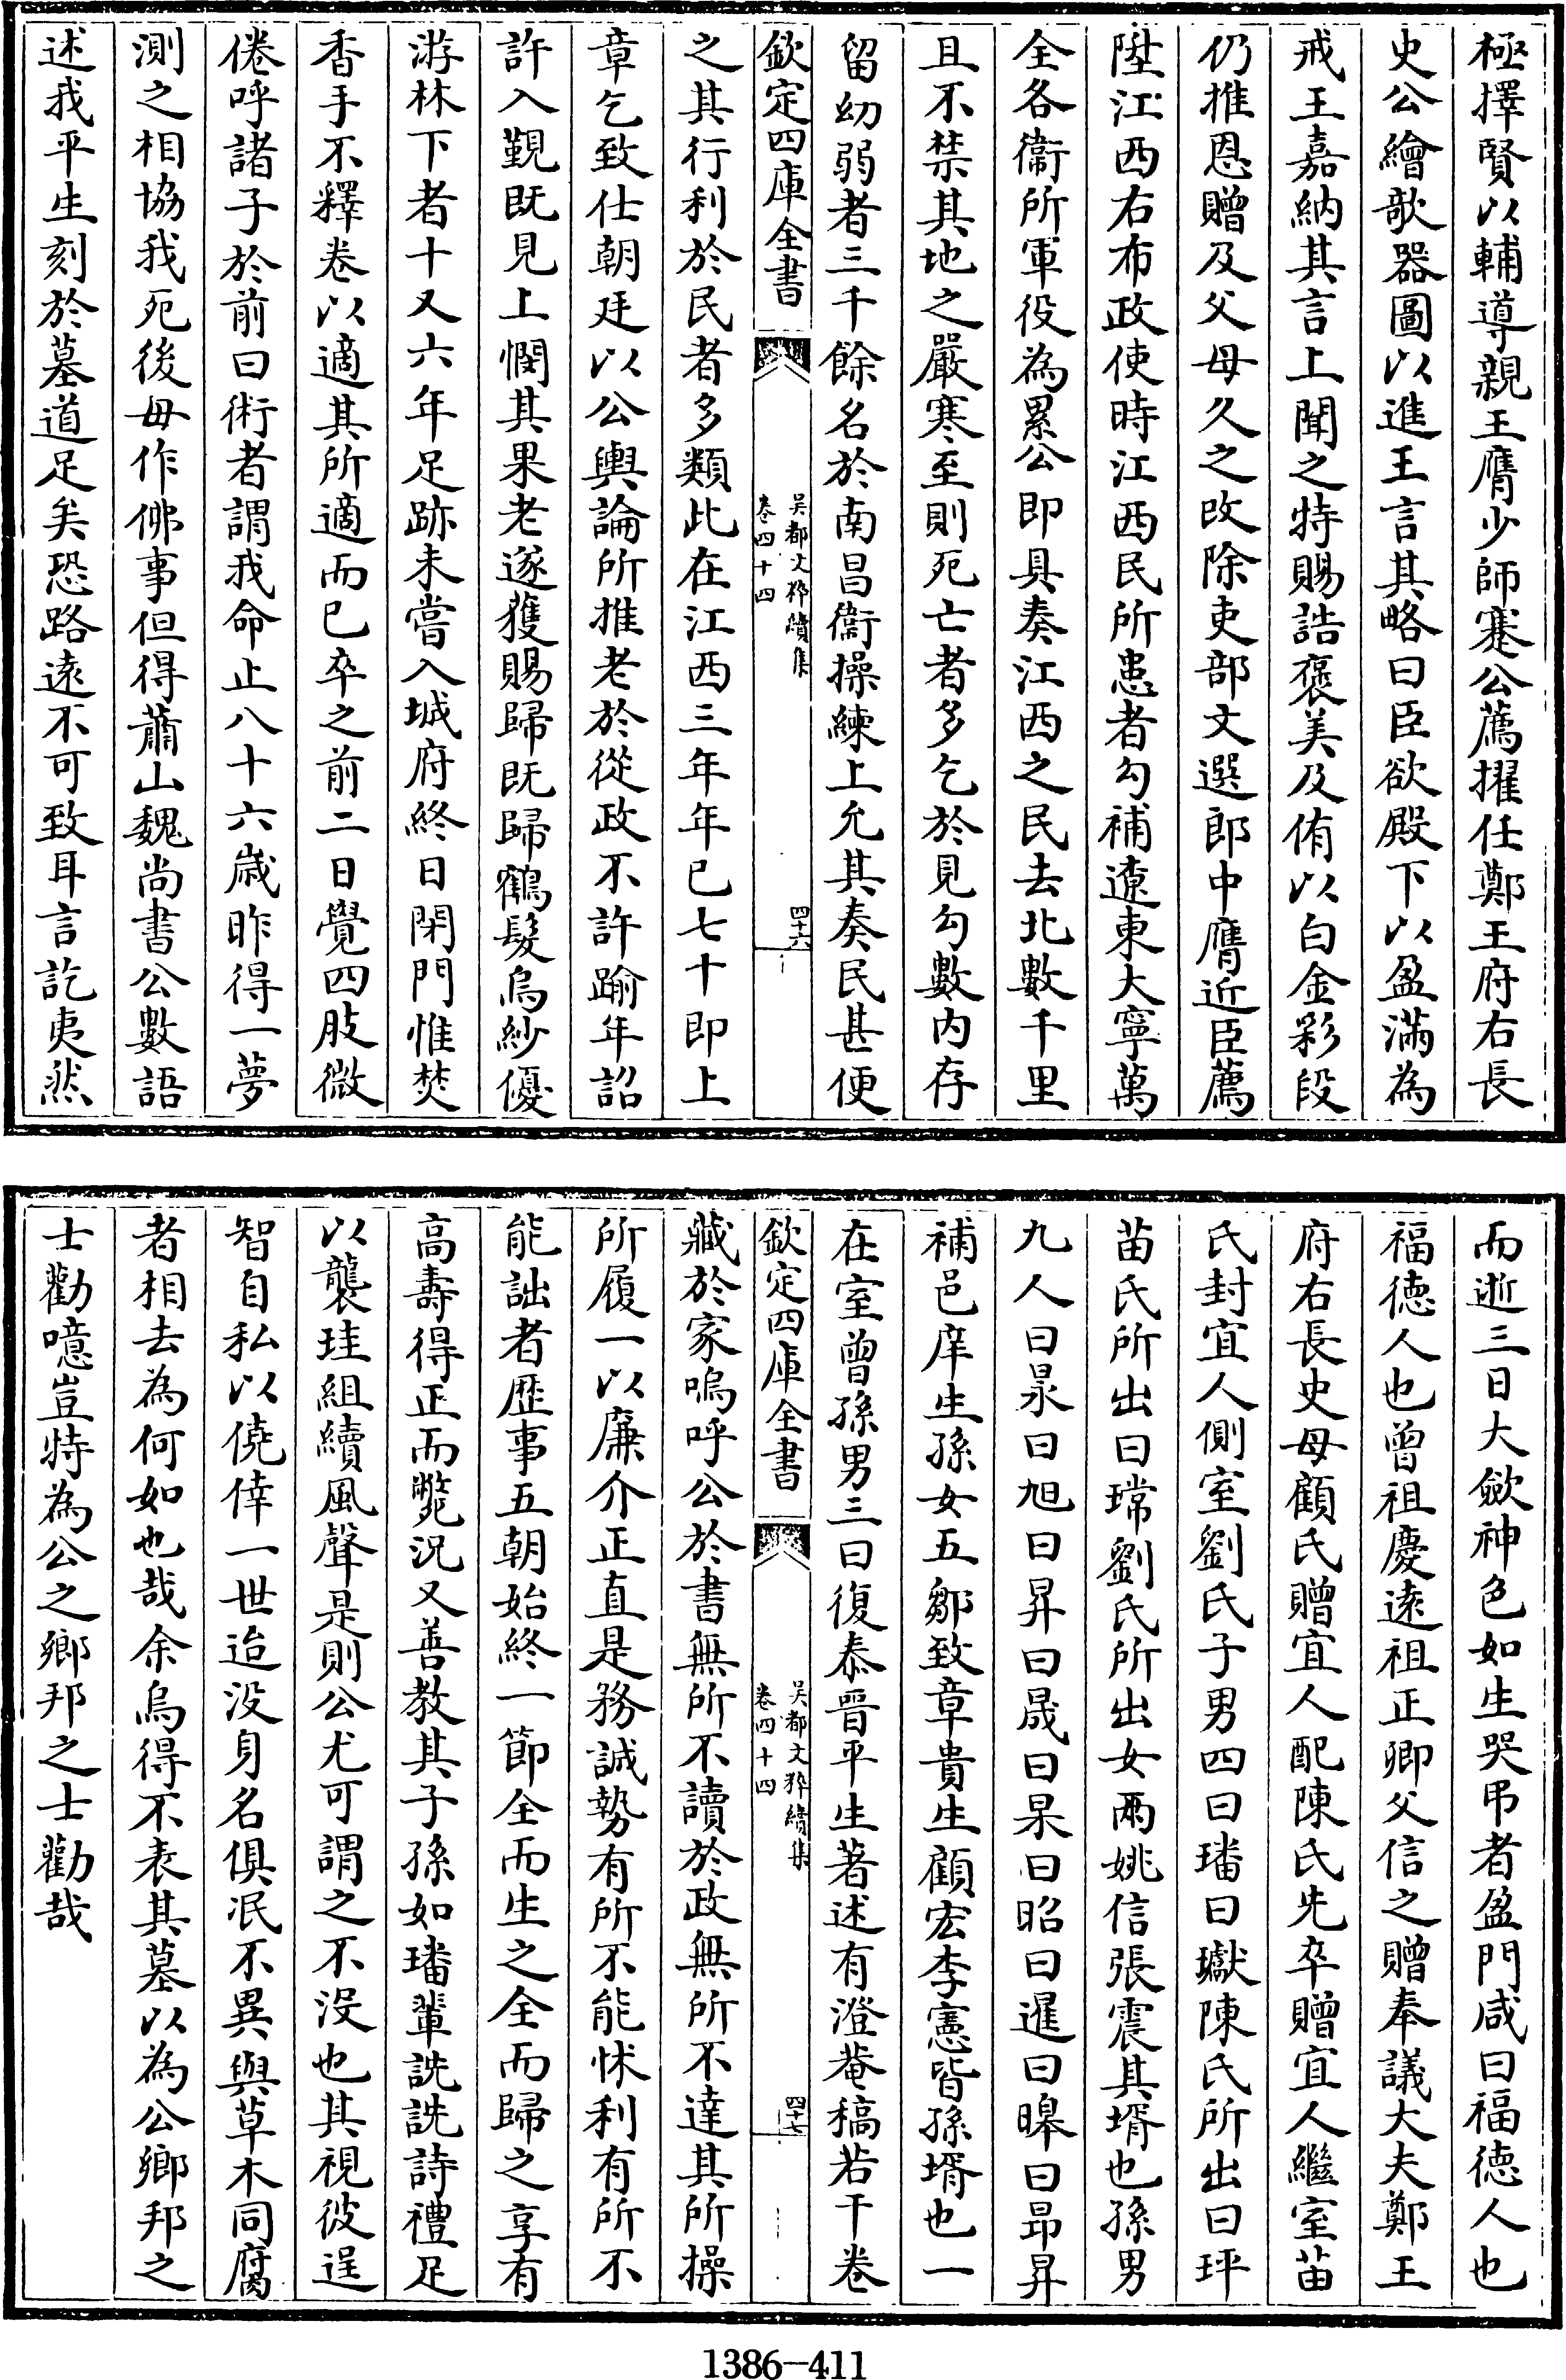 極擇賢以輔導親王膺少師蹇公薦擢任鄭王府右長
史公繪欹器圖以進王言其略曰臣欲殿下以盈滿為
戒王嘉納其言上聞之特賜誥褒美及侑以白金彩段
仍推恩贈及父母久之改除吏部文選郎中膺近臣薦
陞江西右布政使時江西民所患者勾補遼東大寧萬
全各衞所軍役為累公即具奏江西之民去北數千里
且不禁其地之嚴寒至則死亡者多乞於見勾數内存
留幼弱者三千餘名於南昌衞操練上允其奏民甚便
欽定四庫全書
吳都文粹續集
卷四十四
四十六
之其行利於民者多類此在江西三年年已七十即上
章乞致仕朝廷以公輿論所推老於從政不許踰年詔
許入覲既見上憫其果老遂獲賜歸既歸鶴髮烏紗優
游林下者十又六年足跡未嘗入城府終日閉門惟焚
香手不釋卷以適其所適而已卒之前二日覺四肢微
倦呼諸子於前曰術者謂我命止八十六歲昨得一夢
測之相協我死後毋作佛事但得蕭山魏尚書公數語
述我平生刻於墓道足矣恐路遠不可致耳言訖夷然
而逝三日大斂神色如生哭弔者盈門咸曰福德人也
福德人也曾祖慶遠祖正卿父信之贈奉議大夫鄭王
府右長史母顧氏贈宜人配陳氏先卒贈宜人繼室苗
氏封宜人側室劉氏子男四曰璠曰瓛陳氏所出曰玶
苗氏所出曰瑺劉氏所出女兩姚信張震其壻也孫男
九人曰杲曰旭曰昇曰晟曰杲曰昭曰暹曰皥曰昂昇
補邑庠生孫女五鄒致章貴生顧宏李憲皆孫壻也一
在室曾孫男三曰復泰晉平生著述有澄菴稿若干卷
欽定四庫全書
吳都文粹續集
卷四十四
四十七
藏於家嗚呼公於書無所不讀於政無所不達其所操
所履一以廉介正直是務誠勢有所不能怵利有所不
能詘者歴事五朝始終一節全而生之全而歸之享有
高壽得正而斃況又善教其子孫如璠輩詵詵詩禮足
以襲珪組續風聲是則公尤可謂之不没也其視彼逞
智自私以僥倖一世迨没身名俱泯不異與草木同腐
者相去為何如也哉余烏得不表其墓以為公鄉邦之
士勸噫豈特為公之鄉邦之士勸哉
1386-411